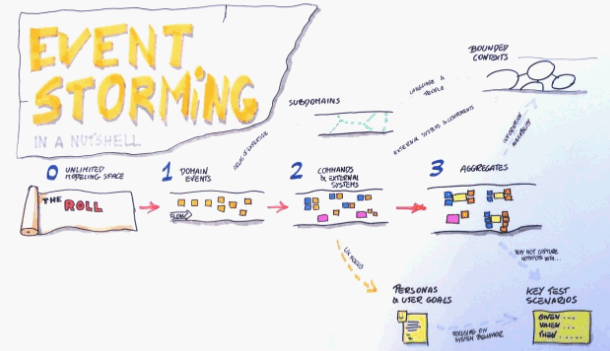 EVENT
STORMING
IN A NUTSHELL
BOUNDED
CONTEXTS
LANGUAGE &
PEOPLE
SUBDOMAINS
EXTERNAL SYSTEMS & COMPONENTS
0 UNLIMITED
MODELING SPACE
1 DOMAIN
EVENTS
2 COMMANDS
& EXTERNAL
SYSTEMS
3 AGGREGATES
THE ROLL
UX FOCUS
PERSONAS
& USER GOALS
FOCUSING ON
SYSTEM BEHAVIOR
KEY TEST
SCENARIOS
GIVEN ...
WHEN ...
THEN ...